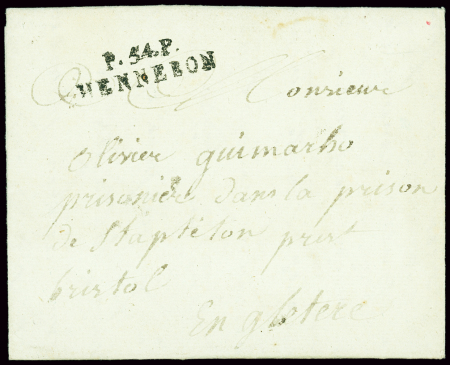 P. 54. P.
HENNEBON
Monsieur
olivier guimarho
prisonier dans la prison
de Stapleton prest
bristol
En gletere